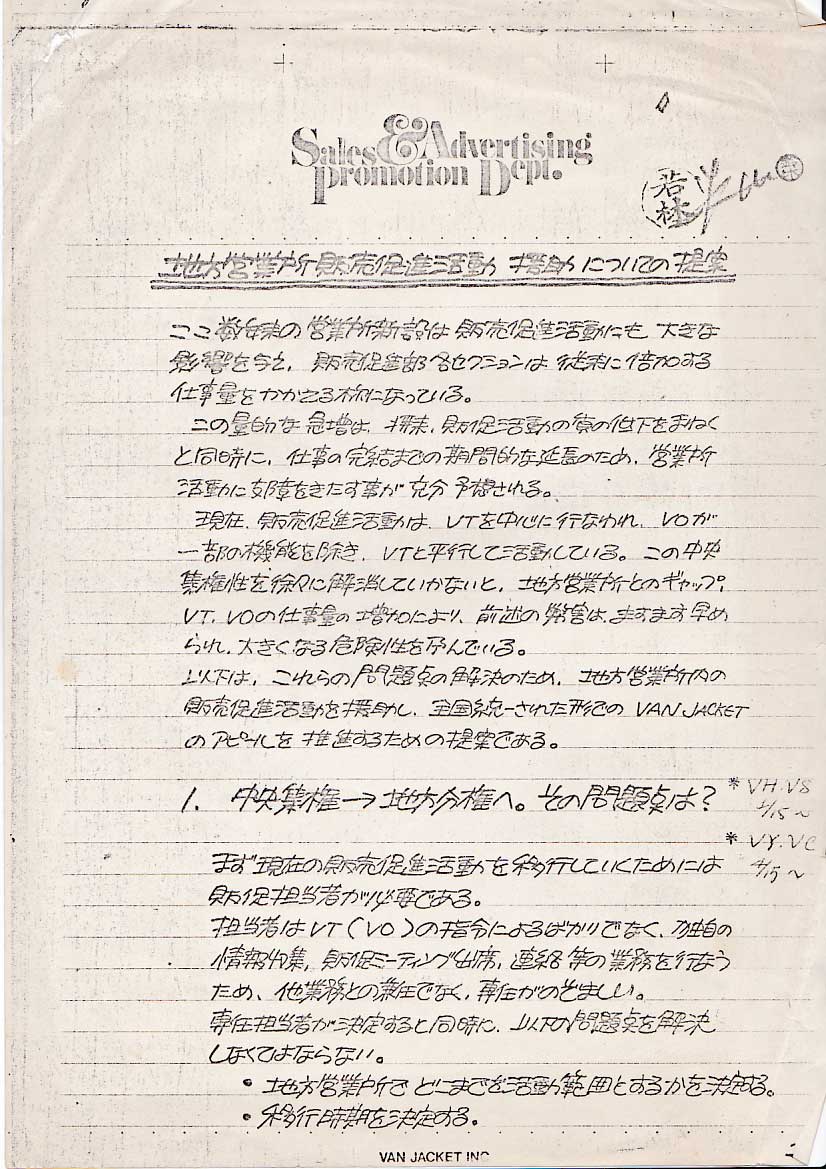 Sales & Advertising
promotion Dept.
若林
地方営業所販売促進活動 援助についての提案
ここ数年来の営業所新設は 販売促進活動にも 大きな
影響を与え、販売促進部各セクションは 従来に倍加する
仕事量をかかえる様になっている。
この量的な急増は、将来、販促活動の質の低下をまねく
と同時に、仕事の完結までの期間的な延長のため、営業所
活動に支障をきたす事が 充分 予想される。
現在、販売促進活動は、VTを中心に行なわれ、VOが
一部の機能を除き、VTと平行して活動している。この中央
集権性を徐々に解消していかないと、地方営業所とのギャップ、
VT、VOの仕事量の増加により、前述の弊害は、ますます早め
られ、大きくなる危険性を孕んでいる。
以下は、これらの問題点の解決のため、地方営業所内の
販売促進活動を援助し、全国統一された形での VAN JACKET
のアピールを推進するための提案である。
1. 中央集権→地方分権へ。その問題点は?
* VH.VS
4/15~
* VY.VC
4/15~
まず現在の販売促進活動を移行していくためには
販促担当者が必要である。
担当者はVT(VO)の指令によるばかりでなく、独自の
情報収集、販促ミーティング出席、連絡等の業務を行なう
ため、他業務との兼任でなく、専任がのぞましい。
専任担当者が決定すると同時に、以下の問題点を解決
しなくてはならない。
• 地方営業所で どこまでを活動範囲とするかを決定する。
• 移行時期を決定する。
VAN JACKET INC